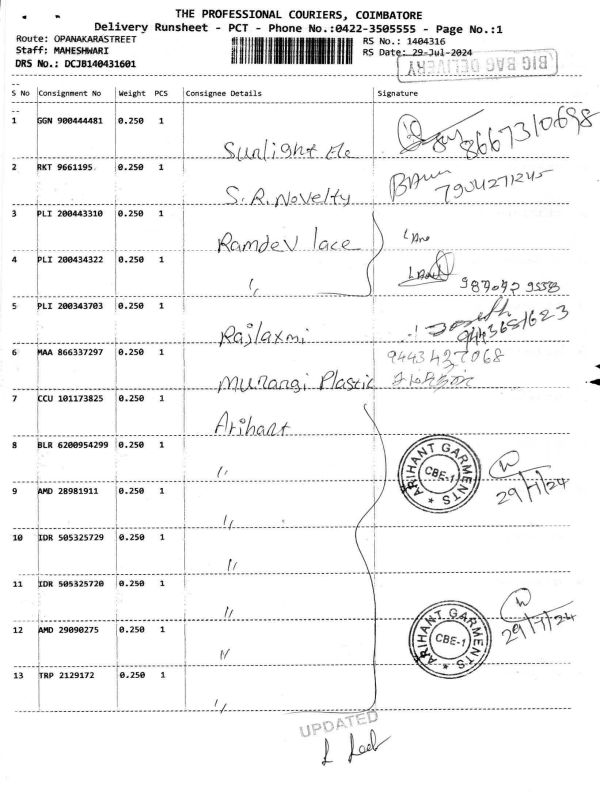 THE PROFESSIONAL COURIERS, COIMBATORE
Delivery Runsheet - PCT - Phone No.:0422-3505555 - Page No.:1
Route: OPANAKARASTREET
RS No.: 1404316
Staff: MAHESHWARI
RS Date: 29-Jul-2024
DRS No.: DCJB140431601
BIG BAG DELIVERY
S No Consignment No Weight PCS Consignee Details Signature
1 GGN 900444481 0.250 1
Sunlight Ele 8667310698
2 RKT 9661195 0.250 1
S.R. Novelty 7904271245
3 PLI 200443310 0.250 1
Ramdev lace
4 PLI 200434322 0.250 1
〃
5 PLI 200343703 0.250 1
Rajlaxmi 9443651623
6 MAA 866337297 0.250 1 9443427068
Murangi Plastic
7 CCU 101173825 0.250 1
Arihant
8 BLR 6200954299 0.250 1
〃
ARIHANT GARMENTS
CBE-1
29/7/24
9 AMD 28981911 0.250 1
〃
10 IDR 505325729 0.250 1
〃
11 IDR 505325720 0.250 1
〃
12 AMD 29090275 0.250 1
〃
ARIHANT GARMENTS
CBE-1
29/7/24
13 TRP 2129172 0.250 1
〃
UPDATED